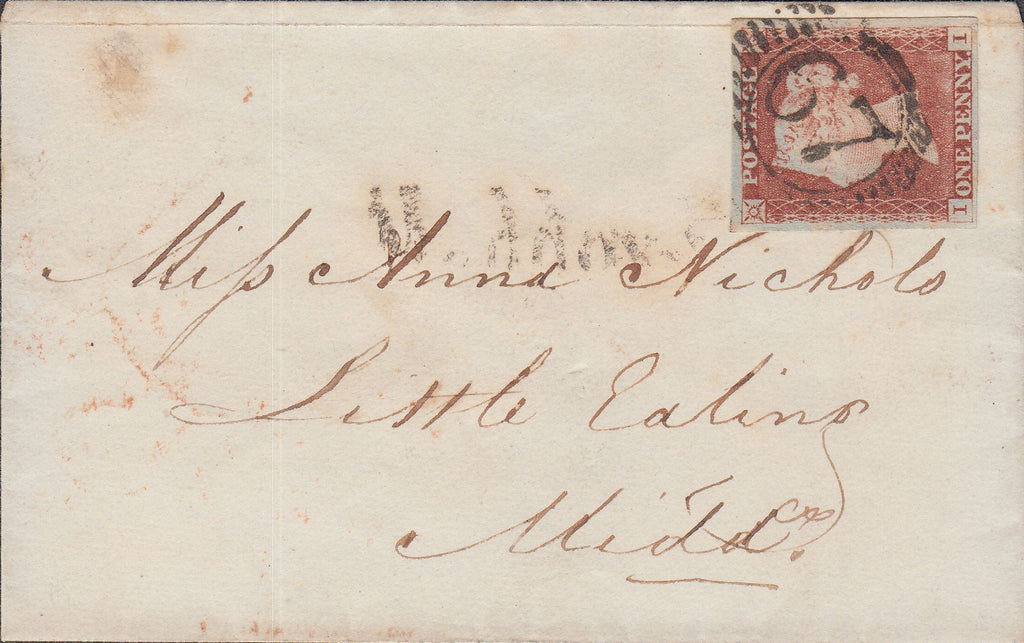 POSTAGE
ONE PENNY
I I
Miss Anna Nichols
Little Ealing
Midd.x